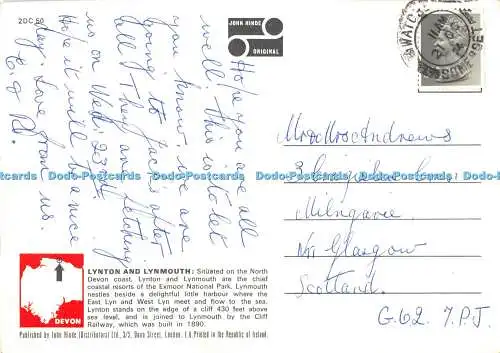 2DC 50
JOHN HINDE
ORIGINAL
WATCHET
SOMERSET
Hope you are all
well. this is to let
you know we are
going to Jac's after
all. They are fetching
us on Wed. 23rd.
Hope it will be a nice
day. Love from us.
Mr & Mrs Andrews
Milngavie
Nr Glasgow
Scotland.
G62. 7.P.J.
LYNTON AND LYNMOUTH: Situated on the North
Devon coast, Lynton and Lynmouth are the chief
coastal resorts of the Exmoor National Park. Lynmouth
nestles beside a delightful little harbour where the
East Lyn and West Lyn meet and flow to the sea.
Lynton stands on the edge of a cliff 430 feet above
sea level, and is joined to Lynmouth by the Cliff
Railway, which was built in 1890.
DEVON
Published by John Hinde (Distributors) Ltd., 3/5, Dean Street, London. 1 & Printed in the Republic of Ireland.
Dodo-Postcards Dodo-Postcards Dodo-Postcards Dodo-Postcards